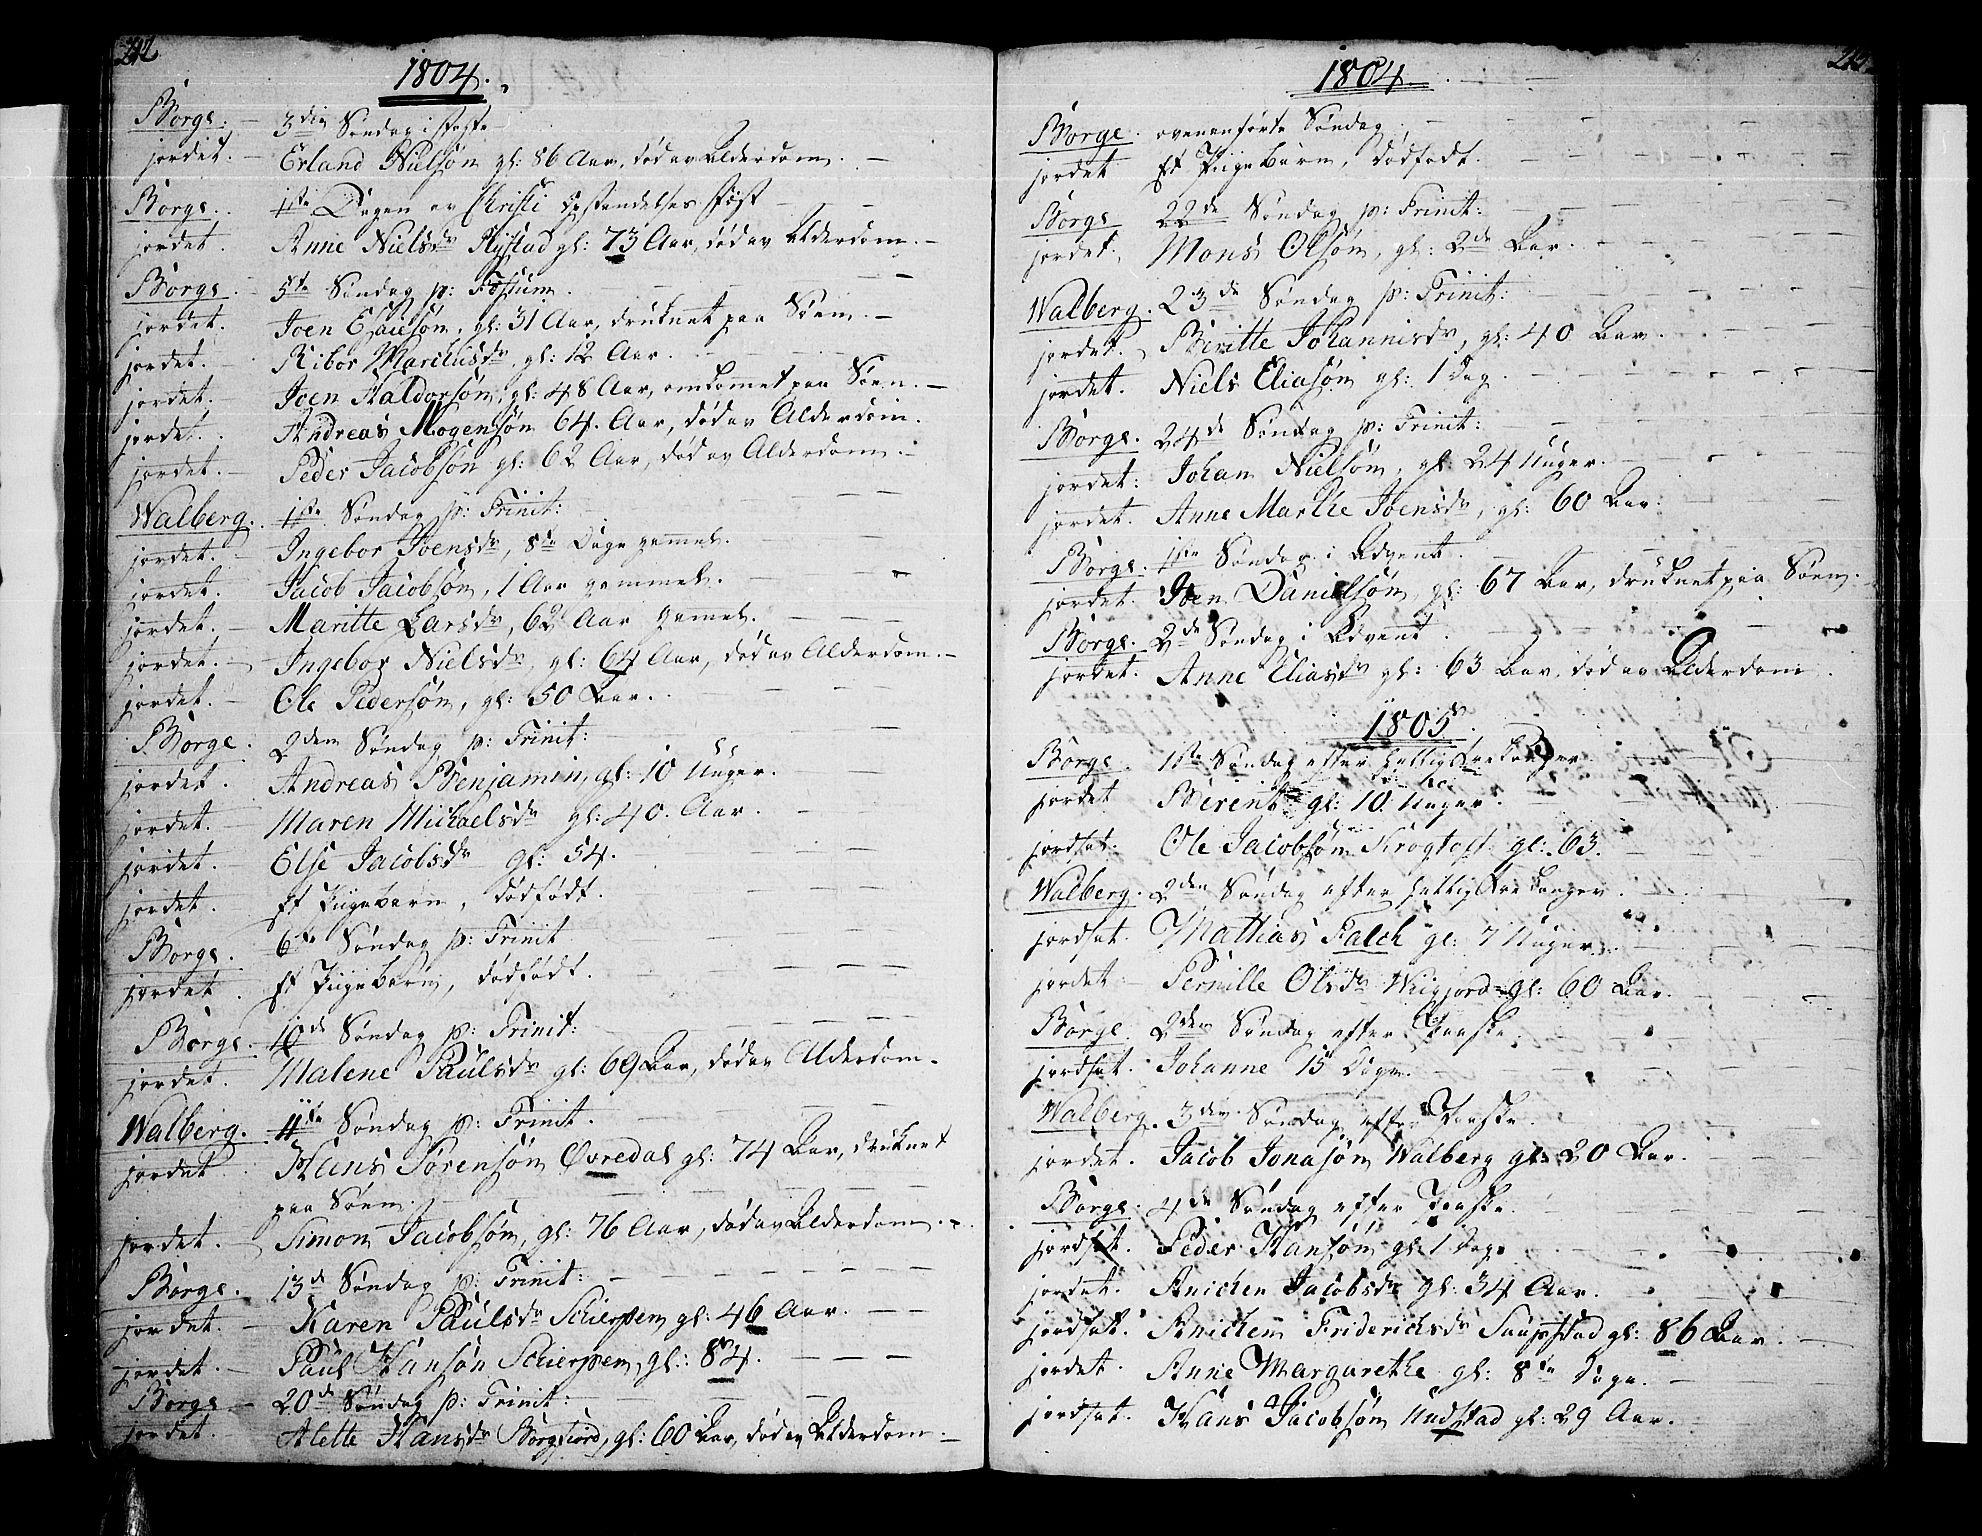 1804.
Borge. 3die Søndag i Faste
jordet. Erland Nielsøn gl: 86 Aar, død av Alderdom.
Borge. 1ste Dagen av Christi Opstandelses Fæst
jordet. Anne Nielsdr Hystad gl: 73 Aar, død av Alderdom.
Borge. 5te Søndag p:
jordet. Joen Esaiesøn, gl: 31 Aar, druknet paa Søen.
jordet. Ribor Marcusdr, gl: 12 Aar.
jordet. Joen Haldorsøn, gl: 48 Aar, omkomet paa Søen.
jordet. Andreas Mogensøn 64. Aar, død av Alderdom.
jordet. Peder Jacobsøn gl: 62 Aar, død av Alderdom.
Walberg. 1ste Søndag p: Trinit:
jordet. Ingebor Joensdr, 8te Dage gamel.
jordet. Jacob Jacobsøn, 1 Aar gammel.
jordet. Maritte Larsdr, 62 Aar gamel.
jordet. Ingebor Nielsdr, gl: 64 Aar, død av Alderdom.
jordet. Ole Pedersøn, gl: 50 Aar.
Borge. 2den Søndag p: Trinit:
jordet. Andreas Benjamin, gl: 10 Uger.
jordet. Maren Michaelsdr gl: 40. Aar.
jordet. Else Jacobsdr gl: 54.
jordet. Et Pigebarn, dødfødt.
Borge. 6te Søndag p: Trinit
jordet. Et Pigebarn, dødfødt.
Borge. 10de Søndag p: Trinit:
jordet. Malene Paulsdr gl: 69 Aar, død av Alderdom.
Walberg. 11te Søndag p: Trinit.
jordet Hans Sørensøn Øvredal gl: 74 Aar, druknet
paa Søen.
jordet. Simon Jacobsøn, gl: 76 Aar, død av Alderdom.
Borge. 13de Søndag p: Trinit:
jordet. Karen Paulsdr Schierpen gl: 46 Aar.
jordet. Paul Hansøn Schierpen, gl: 84.
Borge 20de Søndag p: Trinit:
jordet. Alette Hansdr Borgfiord, gl: 60 Aar, død av Alderdom.
1804
Borge. ovenanførte Søndag
jordet Et Pigebarn, dødfødt.
Borge 22de Søndag p: Trinit:
jordet. Mons Olsøn, gl: 2de Aar.
Walberg. 23de Søndag p: Trinit:
jordet. Beritte Johannisdr, gl: 40 Aar.
jordet. Niels Eliasøn gl: 1 Dag.
Borge. 24de Søndag p: Trinit:
jordet: Johan Nielsøn, gl: 24 Uger.
jordet. Anne Marthe Joensdr, gl: 60 Aar:
Borge. 1ste Søndag i Advent.
jordet. Joen Danielsøn, gl: 67 Aar, druknet paa Søen.
Borge. 2de Søndag i Advent.
jordet. Anne Eliasdr gl: 63 Aar, død av Alderdom.
1805.
Borge. 1ste Søndag efter Hellig tre Konger
jordet Berent gl: 10 Uger.
jordfæt. Ole Jacobsøn Krogtoft gl: 63.
Walberg. 2den Søndag efter Hellig tre Konger.
jordfæt. Mathias Falch gl: 7 Uger.
jordet Pernille Olsdr Wiigjord gl: 60 Aar.
Borge. 2den Søndag efter Paaske.
jordfæt. Johanne 15 Dage.
Walberg. 3die Søndag efter Paaske.
jordet. Jacob Jonasøn Walberg gl: 20 Aar.
Borge. 4de Søndag efter Paaske.
jordfæt. Peder Hansøn gl: 1 Dag.
jordet. Anichen Jacobsdr gl: 34 Aar.
jordfæt. Anichen Friderichsdr gl: 86 Aar.
jordet. Anne Margarethe gl: 8te Dage.
jordfæt. Hans Jacobsøn Uudstad gl: 29 Aar.